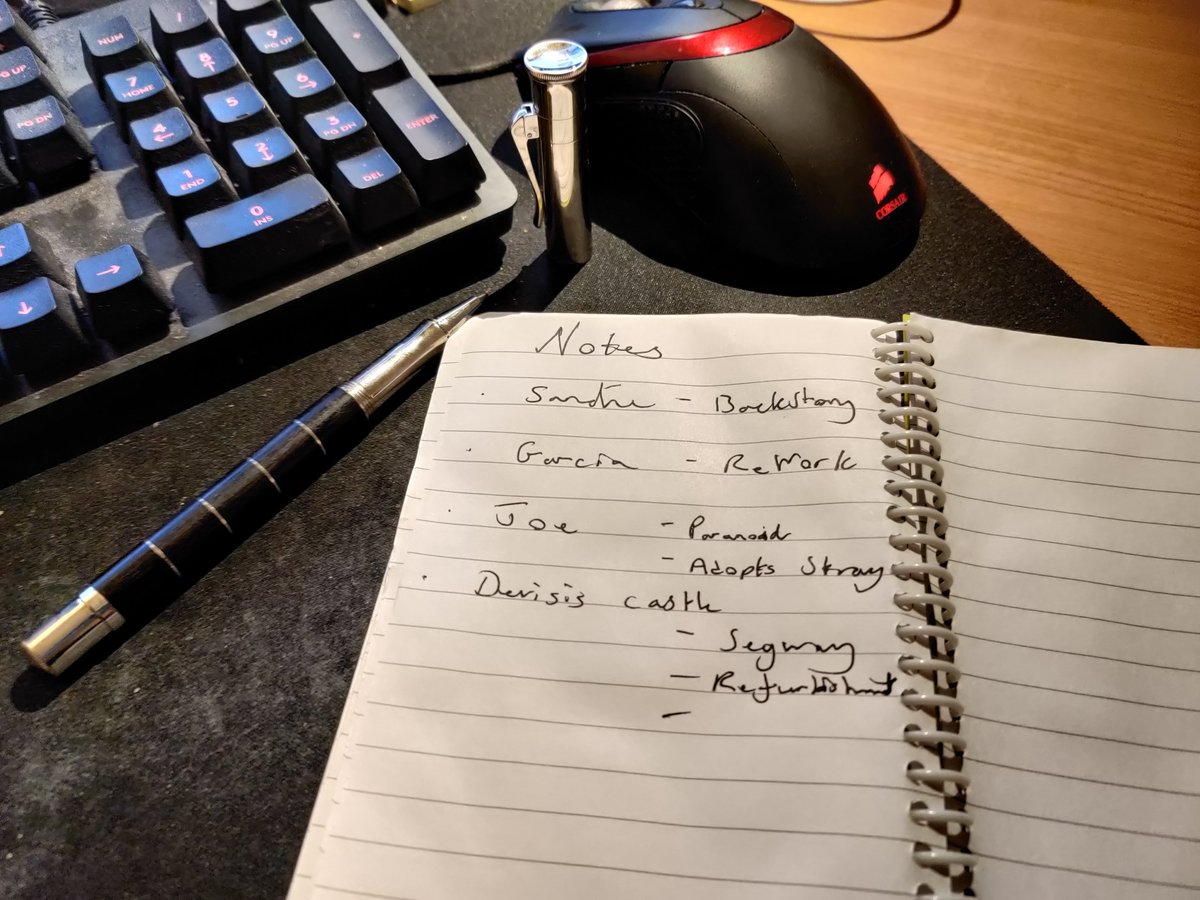 NUM
/
9
PG UP
+
PG UP
7
HOME
8
6
PG DN
4
5
3
PG DN
ENTER
1
END
2
DEL
0
INS
CORSAIR
Notes
· - Backstory
· Garcia - ReWork
· Joe - Paranoid
- Adopts Stray
· castle
- Segway
- Refurbishment
-